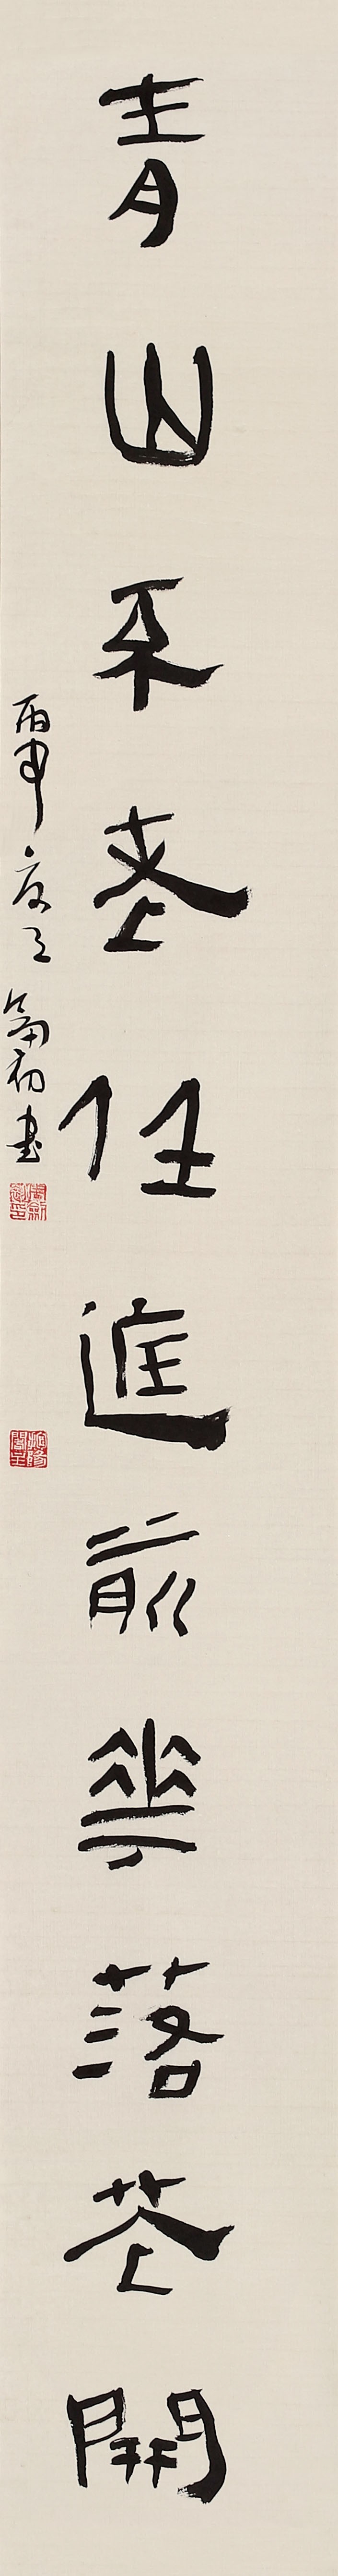 青山不老任庭前華落花開
丙申夏 初書